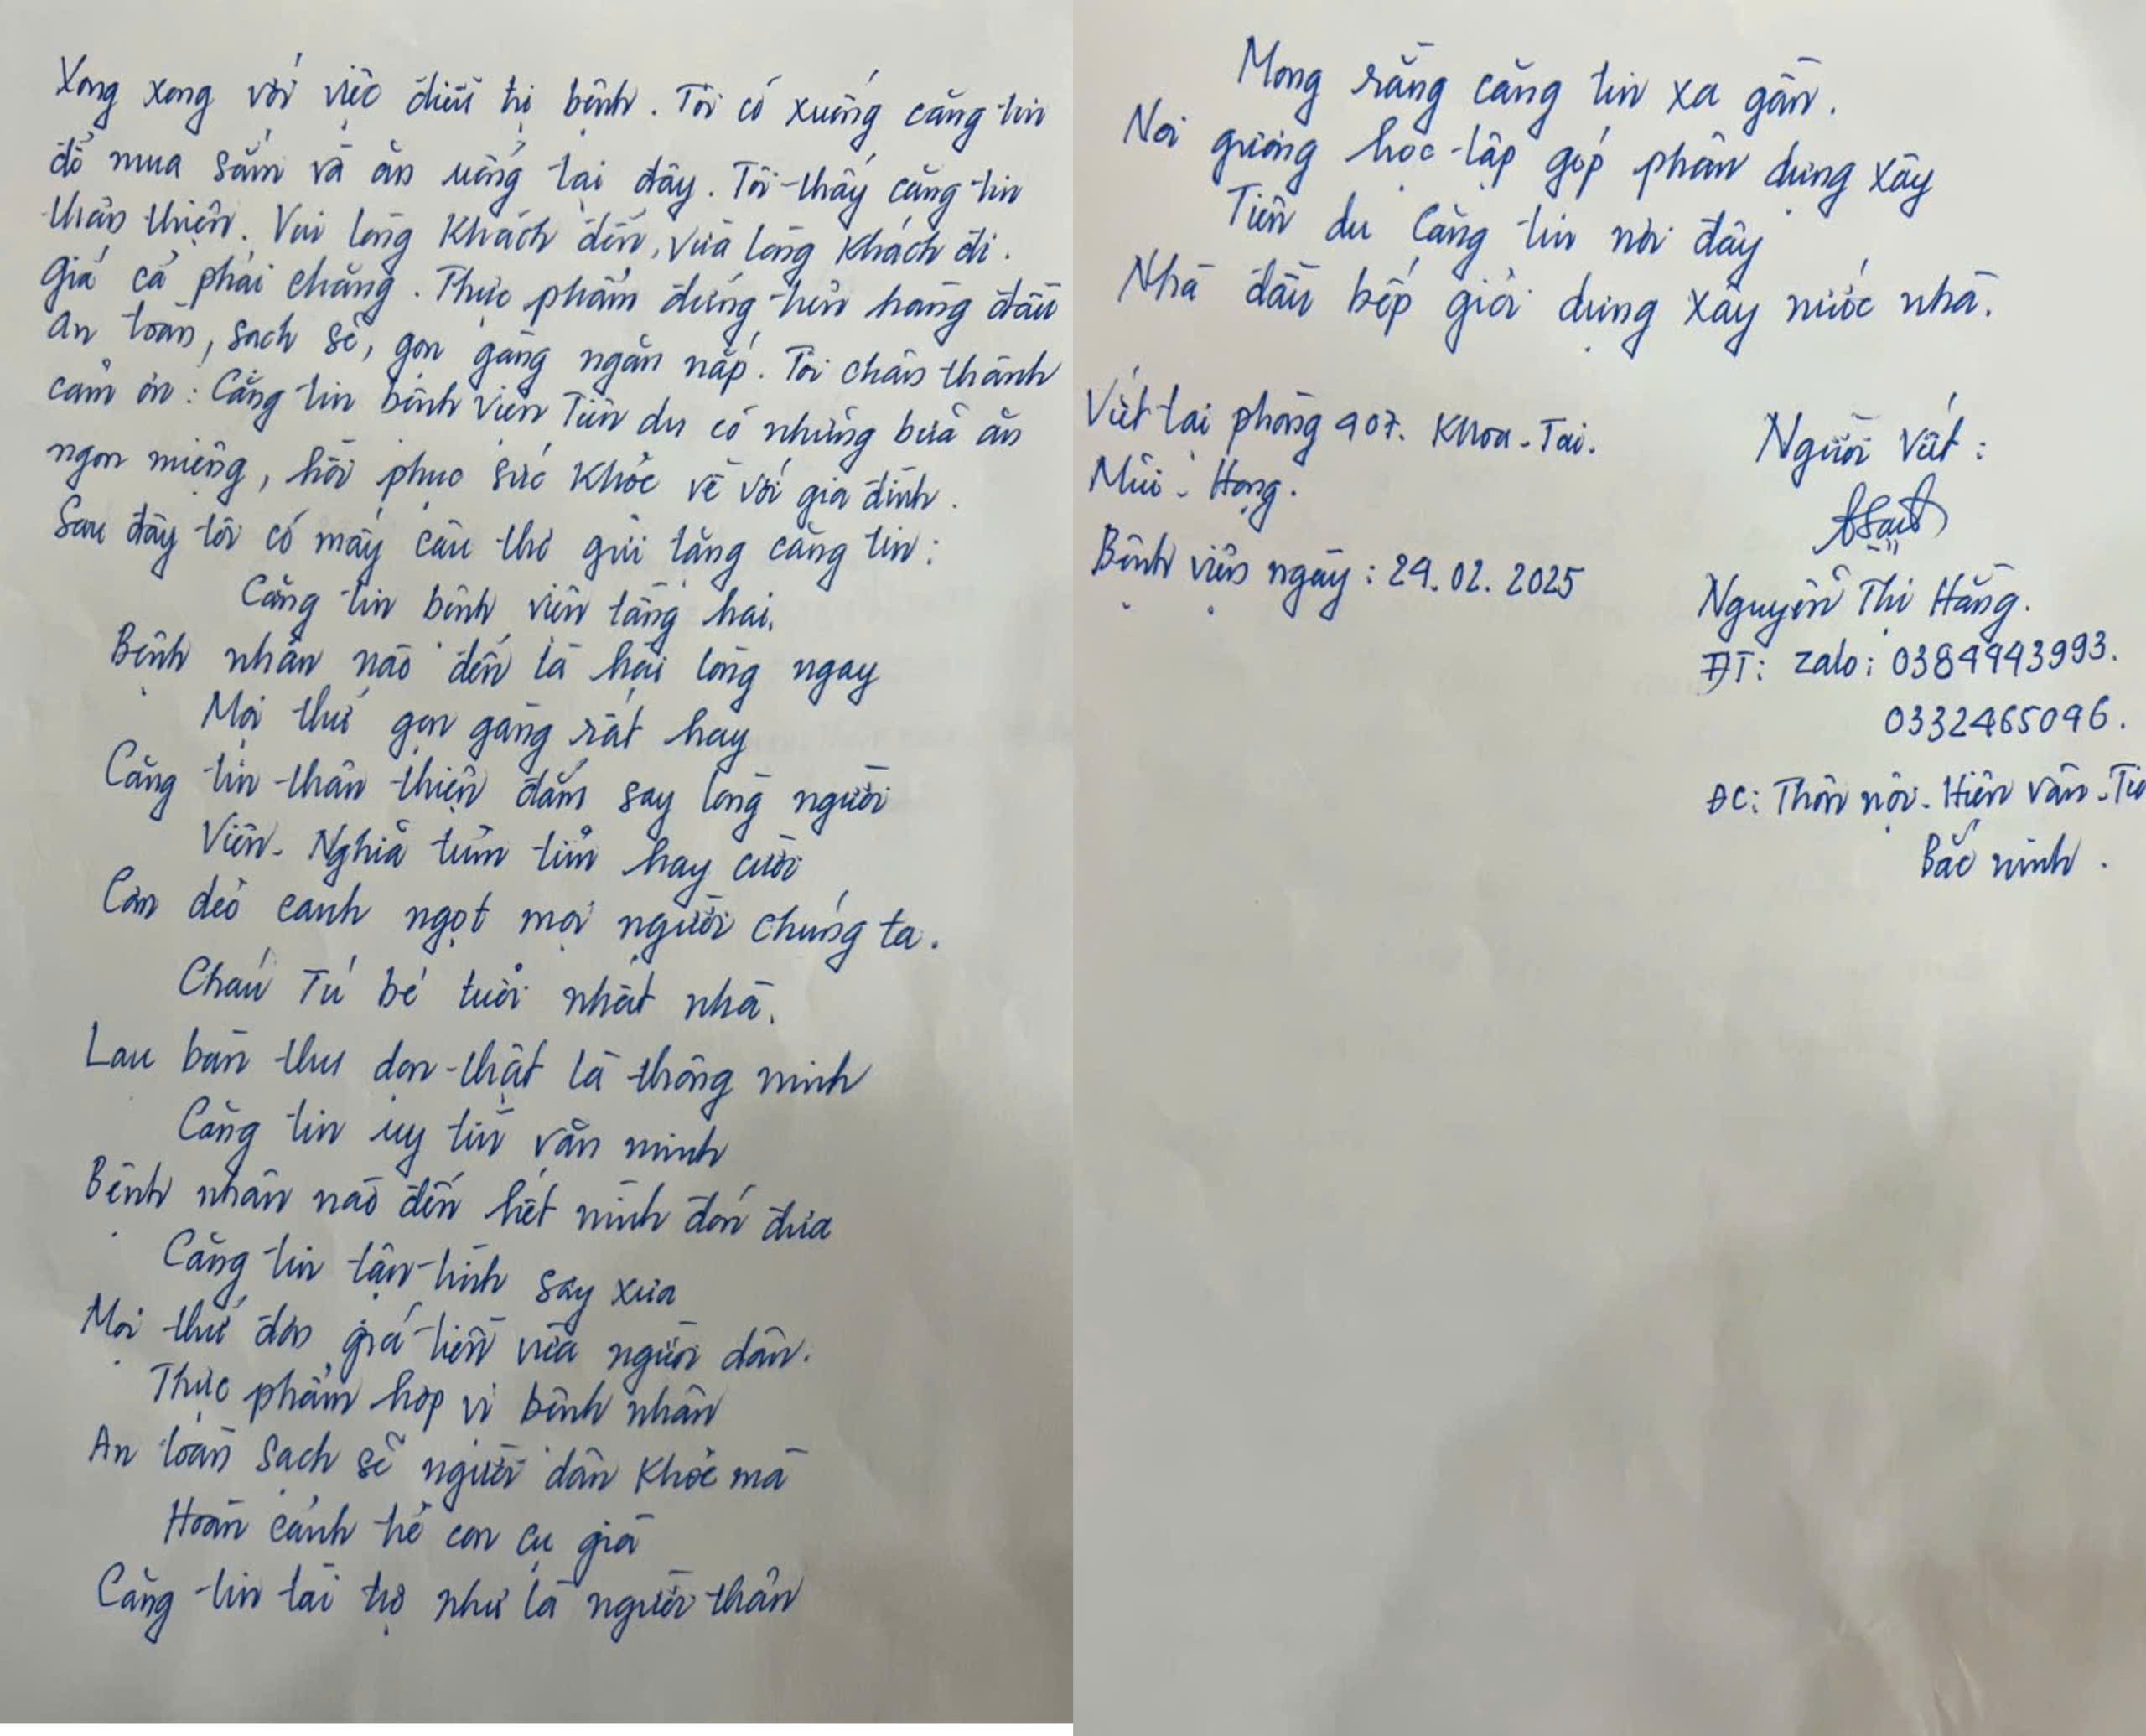 Xong xong với việc điều trị bệnh. Tôi có xuống căng tin
để mua sắm và ăn uống tại đây. Tôi thấy căng tin
thân thiện. Vui lòng khách đến, vừa lòng khách đi.
Giá cả phải chăng. Thực phẩm đứng trên hàng đầu
an toàn, sạch sẽ, gọn gàng ngăn nắp. Tôi chân thành
cảm ơn: Căng tin bệnh viện Tiên du có những bữa ăn
ngon miệng, hồi phục sức khỏe về với gia đình.
Sau đây tôi có mấy câu thơ gửi tặng căng tin:
Căng tin bệnh viện tầng hai.
Bệnh nhân nào đến là hài lòng ngay
Mọi thứ gọn gàng rất hay
Căng tin thân thiện đắm say lòng người
Viên - Nghĩa tủm tỉm hay cười
Cơm dẻo canh ngọt mọi người chúng ta.
Cháu Tú bé tuổi nhất nhà.
Lau bàn thu dọn thật là thông minh
Căng tin uy tín văn minh
Bệnh nhân nào đến hết mình đón đưa
Căng tin tận tình say xưa
Mọi thứ đơn giá tiền vừa người dân.
Thực phẩm hợp vị bệnh nhân
An toàn sạch sẽ người dân khỏe mà
Hoàn cảnh trẻ con cụ già
Căng tin tài trợ như là người thân
Mong rằng căng tin xa gần.
Noi gương học tập góp phần dựng xây
Tiên du Căng tin nơi đây
Nhà đầu bếp giỏi dựng xây nước nhà.
Viết tại phòng 907. Khoa - Tai.
Mũi - Họng.
Bệnh viện ngày: 24.02.2025
Người viết:
Nguyễn Thị Hằng.
ĐT: Zalo: 0384943993.
0332465096.
ĐC: Thôn nội - Hiên Vân - Tiê
Bắc ninh.